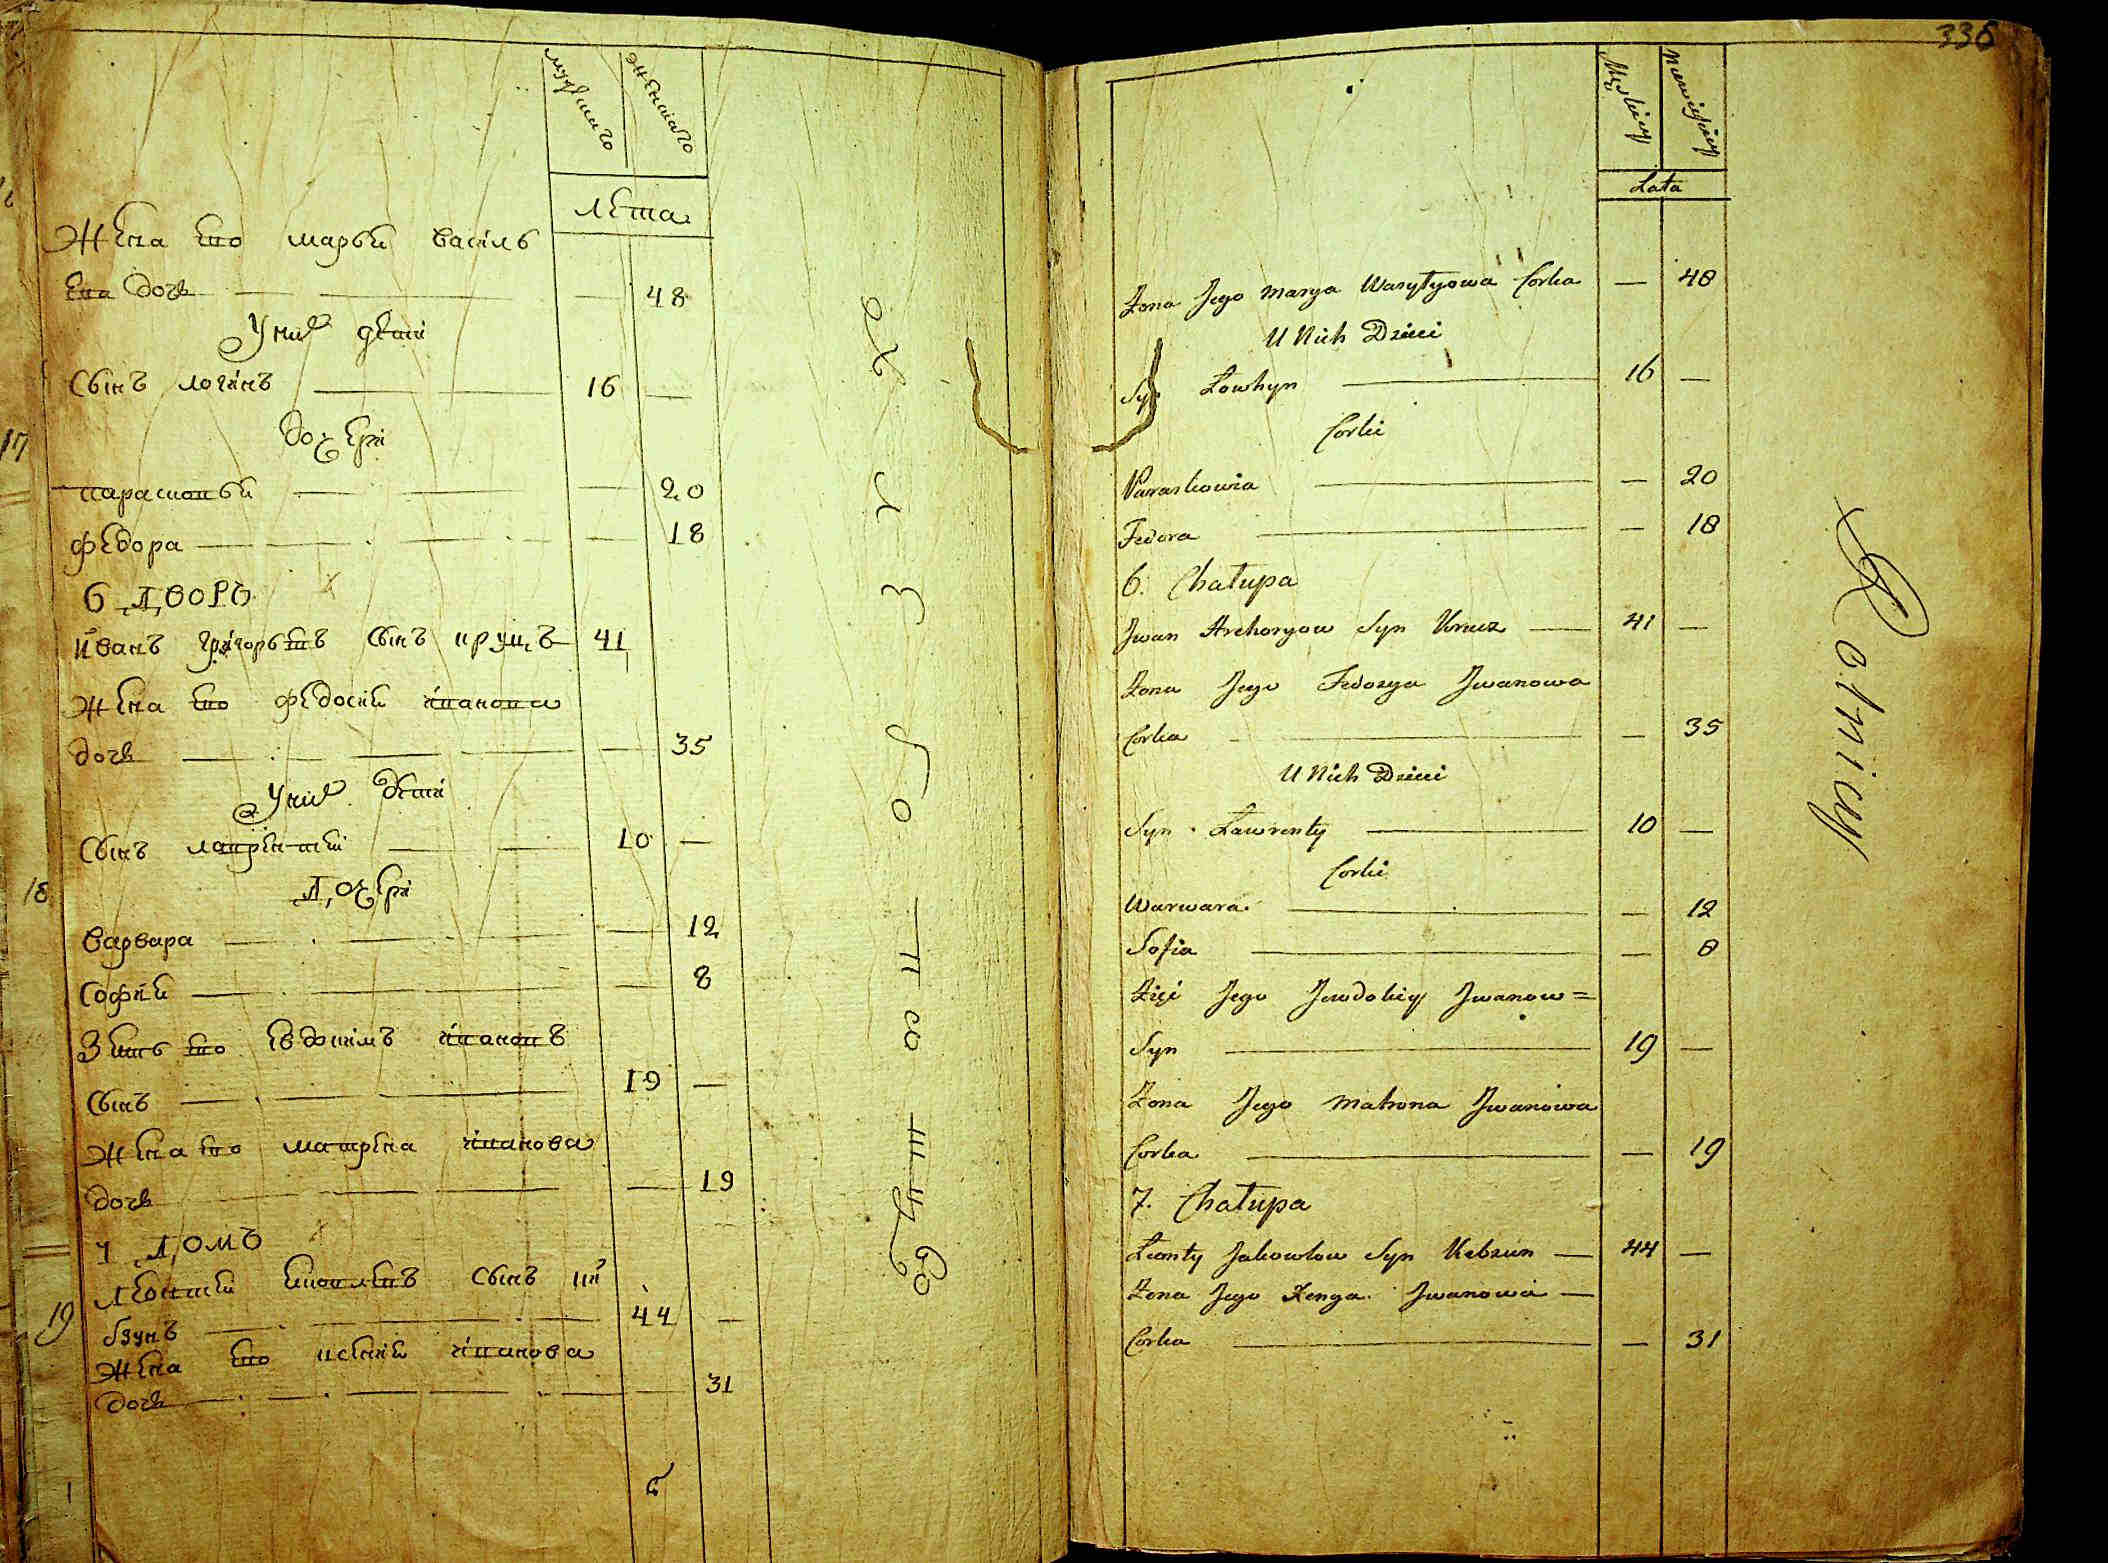 мужскаго
женскаго
лета
Жена ево марья василь
ева дочь 48
У них дети
сынъ логинъ 16 —
дочери
17
парасковья 20
федора — 18
6 дворъ
иванъ григорьевъ сынъ куцъ 41
жена ево федосия иванова
дочь — 35
У них дети
сынъ лаврентей 10 —
18
дочери
варвара — 12
софия — 8
зять ево иванъ
сынъ 19 —
жена ево матрена иванова
дочь — 19
7 домъ
19
леонтей яковлевъ сынъ ке
бзунъ 44 —
жена ево ксения иванова
дочь — 31
336
Męskiey
Niewieściey
Lata
Żona Jego Marya Wasylyowa Corka — 48
U Nich Dzieci
Syn Łowhyn 16 —
Corki
Paraskowia — 20
Fedora — 18
6. Chałupa
Jwan Hrehoryow Syn Krucz 41 —
Żona Jego Fedosya Jwanowa
Corka — 35
U Nich Dzieci
Syn Ławrenty 10 —
Corki
Warwara — 12
Sofia — 8
Zięć Jego Jwanow=
Syn 19 —
Żona Jego Matrona Jwanowa
Corka — 19
7. Chałupa
Leonty Jakowlow Syn Kebzun — 44 —
Żona Jego Xenya Jwanowa —
Corka — 31
Rolnicy